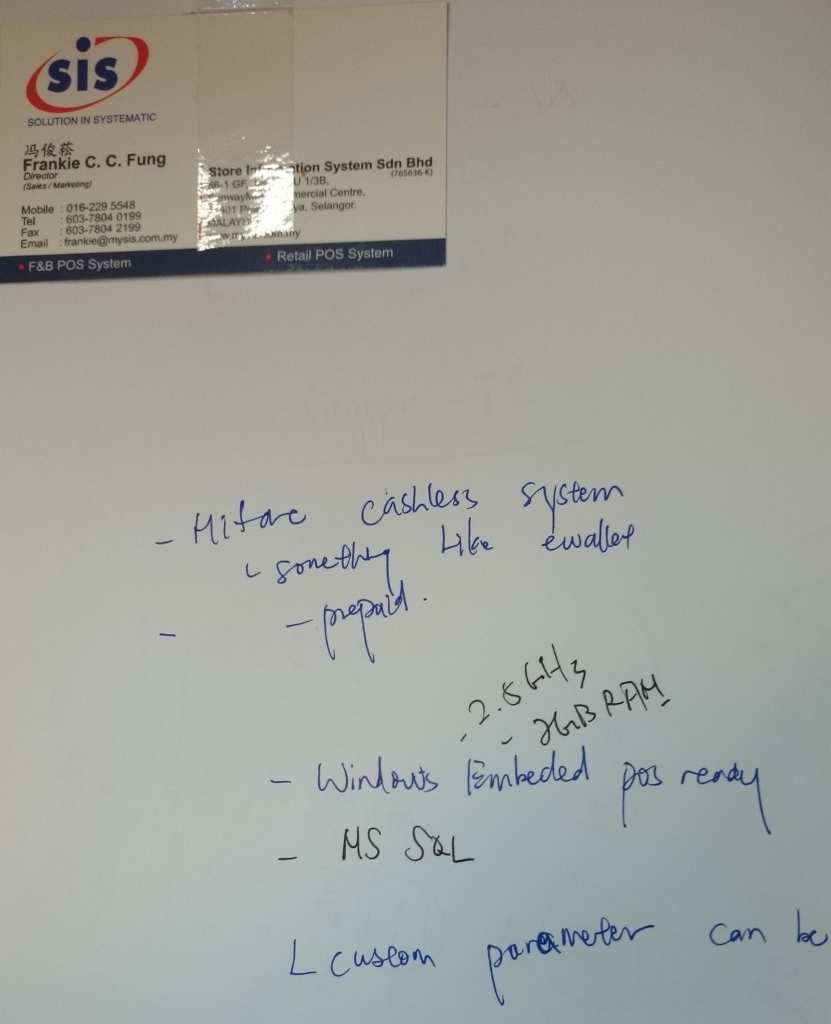 sis
SOLUTION IN SYSTEMATIC
冯俊菘
Frankie C. C. Fung
Director
(Sales / Marketing)
Mobile : 016-229 5548
Tel : 603-7804 0199
Fax : 603-7804 2199
Email : frankie@mysis.com.my
Store System Sdn Bhd
(765636-K)
1/3B,
Centre,
Selangor.
• F&B POS System
• Retail POS System
- Mifare cashless system
something like ewallet
-
- prepaid.
- 2.8GHz
- 2GB RAM
- Windows Embeded pos ready
- MS SQL
custom parameter can be